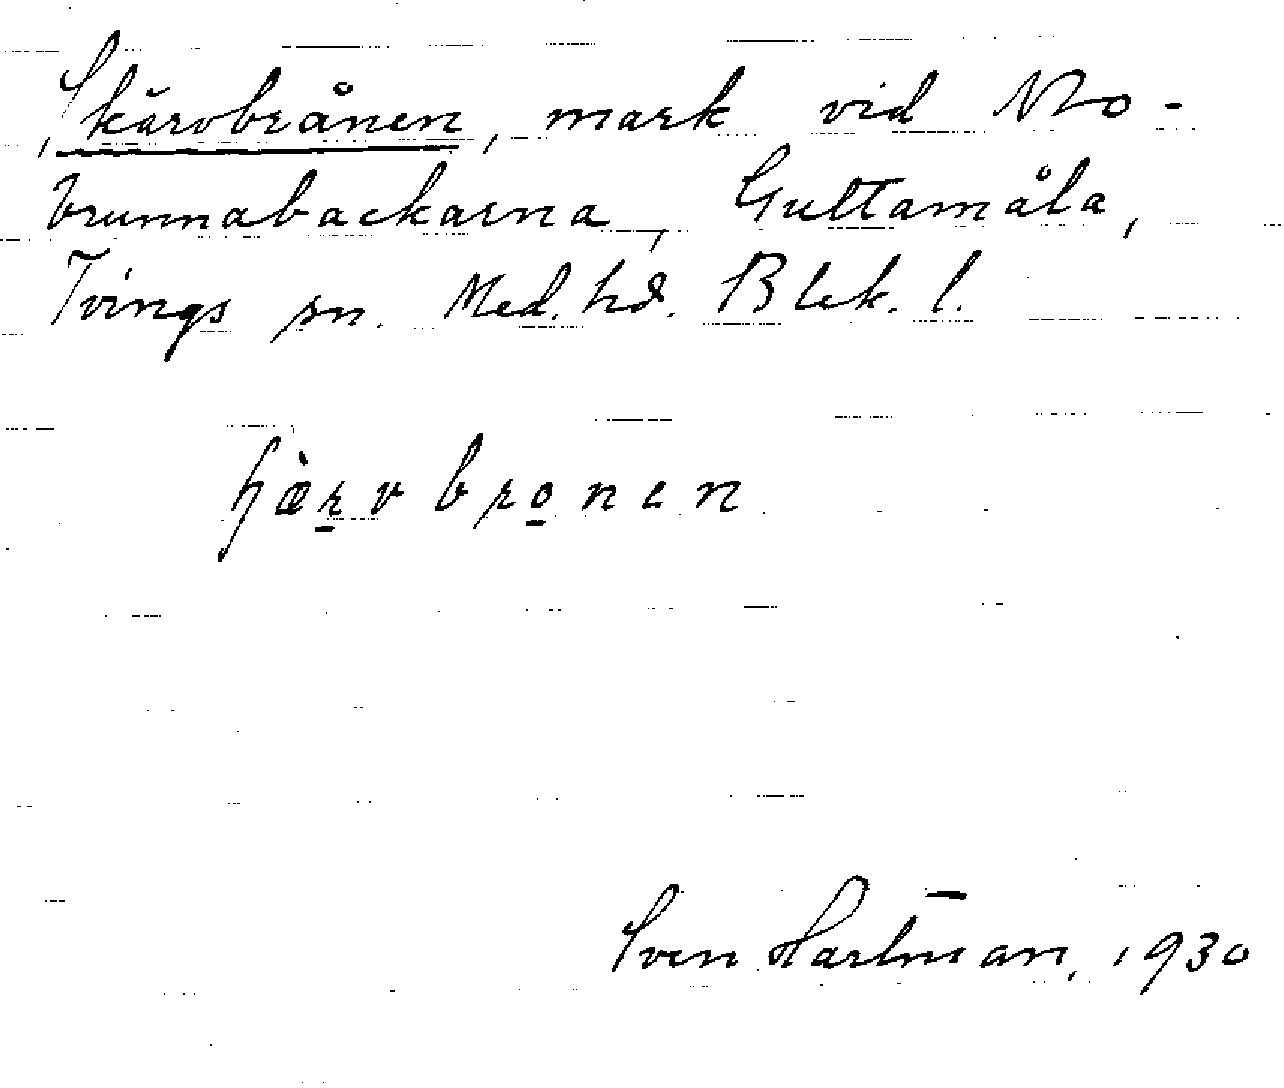 Skärvbrånen, mark vid Mo-
brunnabackarna, Guttamåla,
Tvings sn. Med. hd. Blek. l.
ʃærv bronen
Sven Hartman, 1930